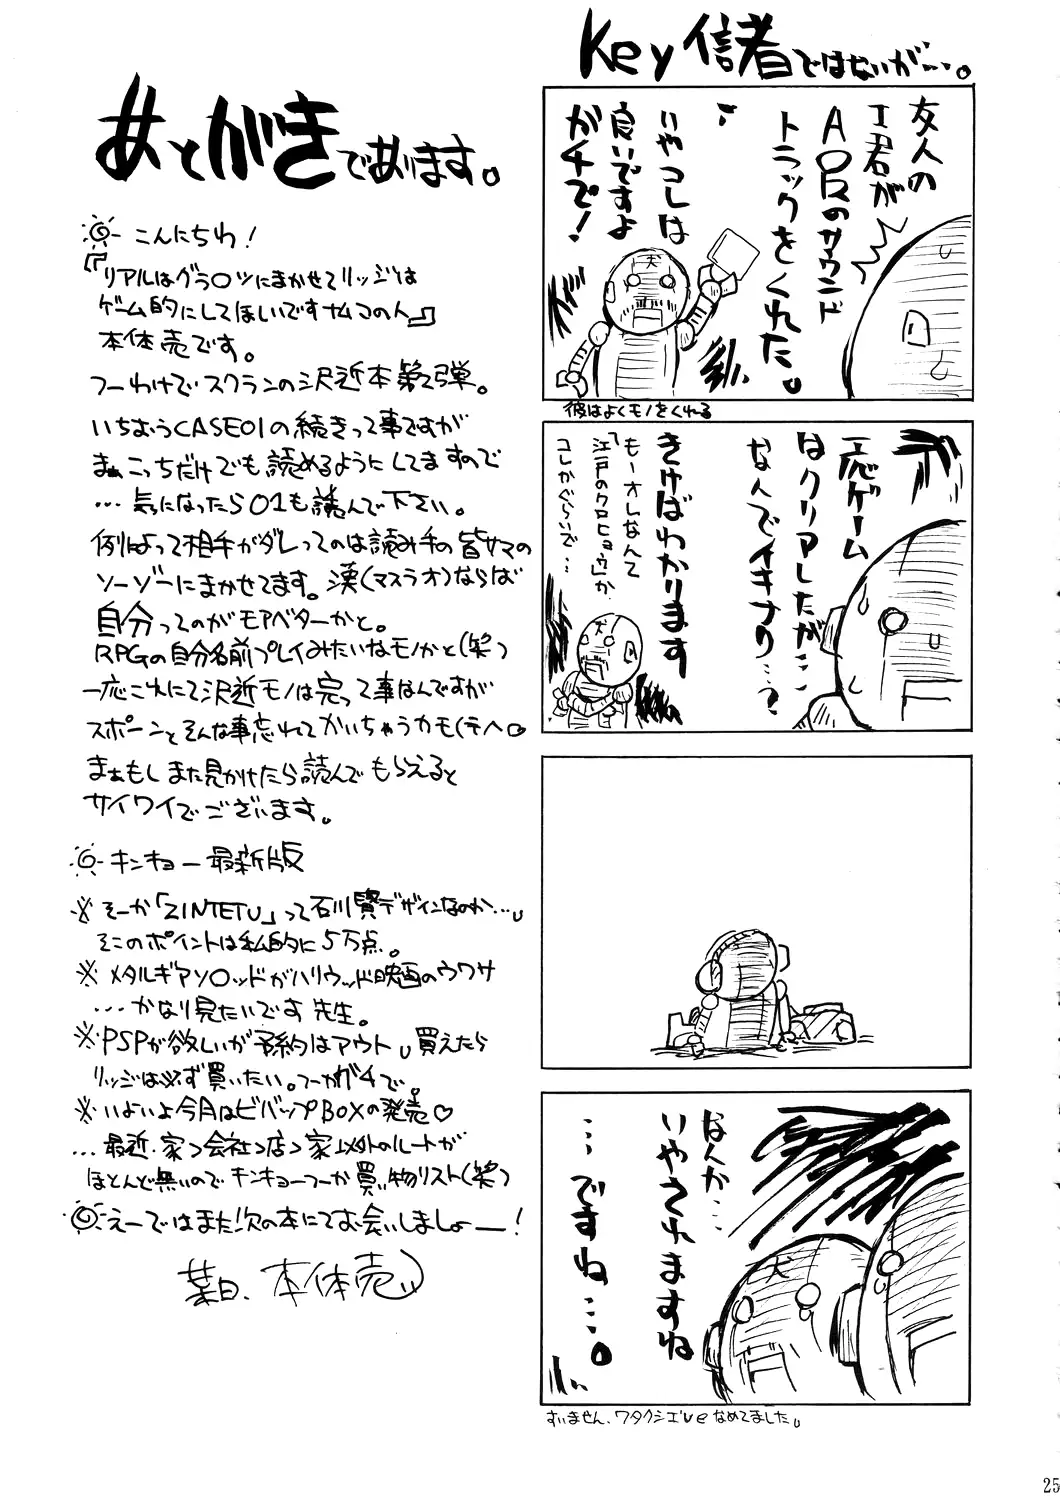 Key信者ではないが…。
友人の
I君が
AIRのサウンド
トラックをくれた。
いやコレは
良いですよ
ガチで!
彼はよくモノをくれる
ゲーム
はクリアしたが…
なんでイキナリ…?
きけばわかります
もーオレなんて
「江戸のクロヒョウ」か
コレかぐらいで…
なんか…
いやされますね
…ですね…。
すいません、ワタクシエ"ve なめてました。
あとがきであります。
こんにちわ!
『リアルはグラ〇ツにまかせてリッジは
ゲーム的にしてほしいですナムコの人』
本体売です。
つーわけでスクランの沢近本第2弾。
いちおうCASE01の続きって事ですが
まぁこっちだけでも読めるようにしてますので
…気になったら01も読んで下さい。
例によって相手がダレってのは読み手の皆サマの
ソーゾーにまかせてます。漢(マスラオ)ならば
自分ってのがモアベターかと。
RPGの自分名前プレイみたいなモノかと(笑)
一応これにて沢近モノは完って事なんですが
スポーンとそんな事忘れてかいちゃうカモ(テヘ。
まぁもしまた見かけたら読んでもらえると
サイワイでございます。
キンキョー最新版
※そーか「ZINTETU」って石川賢デザインなのか…。
そこのポイントは私的に5万点。
※メタルギアソ〇ッドがハリウッド映画のウワサ
…かなり見たいです先生。
※PSPが欲しいが予約はアウト。買えたら
リッジは必ず買いたい。つーかガチで。
※いよいよ今月はビバップBOXの発売♡
…最近、家→会社→店→家以外のルートが
ほとんど無いのでキンキョーつーか買い物リスト(笑)
えーではまた!次の本にてお会いしましょー!
葉日、本体売
25